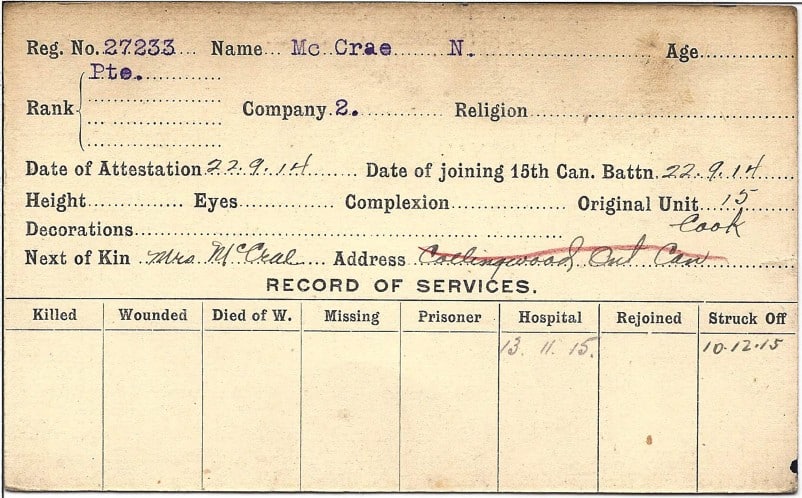 Reg. No. 27233 Name Mc Crae N. Age
Pte.
Rank Company 2. Religion
Date of Attestation 22.9.14 Date of joining 15th Can. Battn. 22.9.14
Height Eyes Complexion Original Unit 15
Decorations Cook
Next of Kin Mrs McCrae Address Collingwood, Ont Can
RECORD OF SERVICES.
Killed Wounded Died of W. Missing Prisoner Hospital Rejoined Struck Off
13. 11. 15. 10.12.15